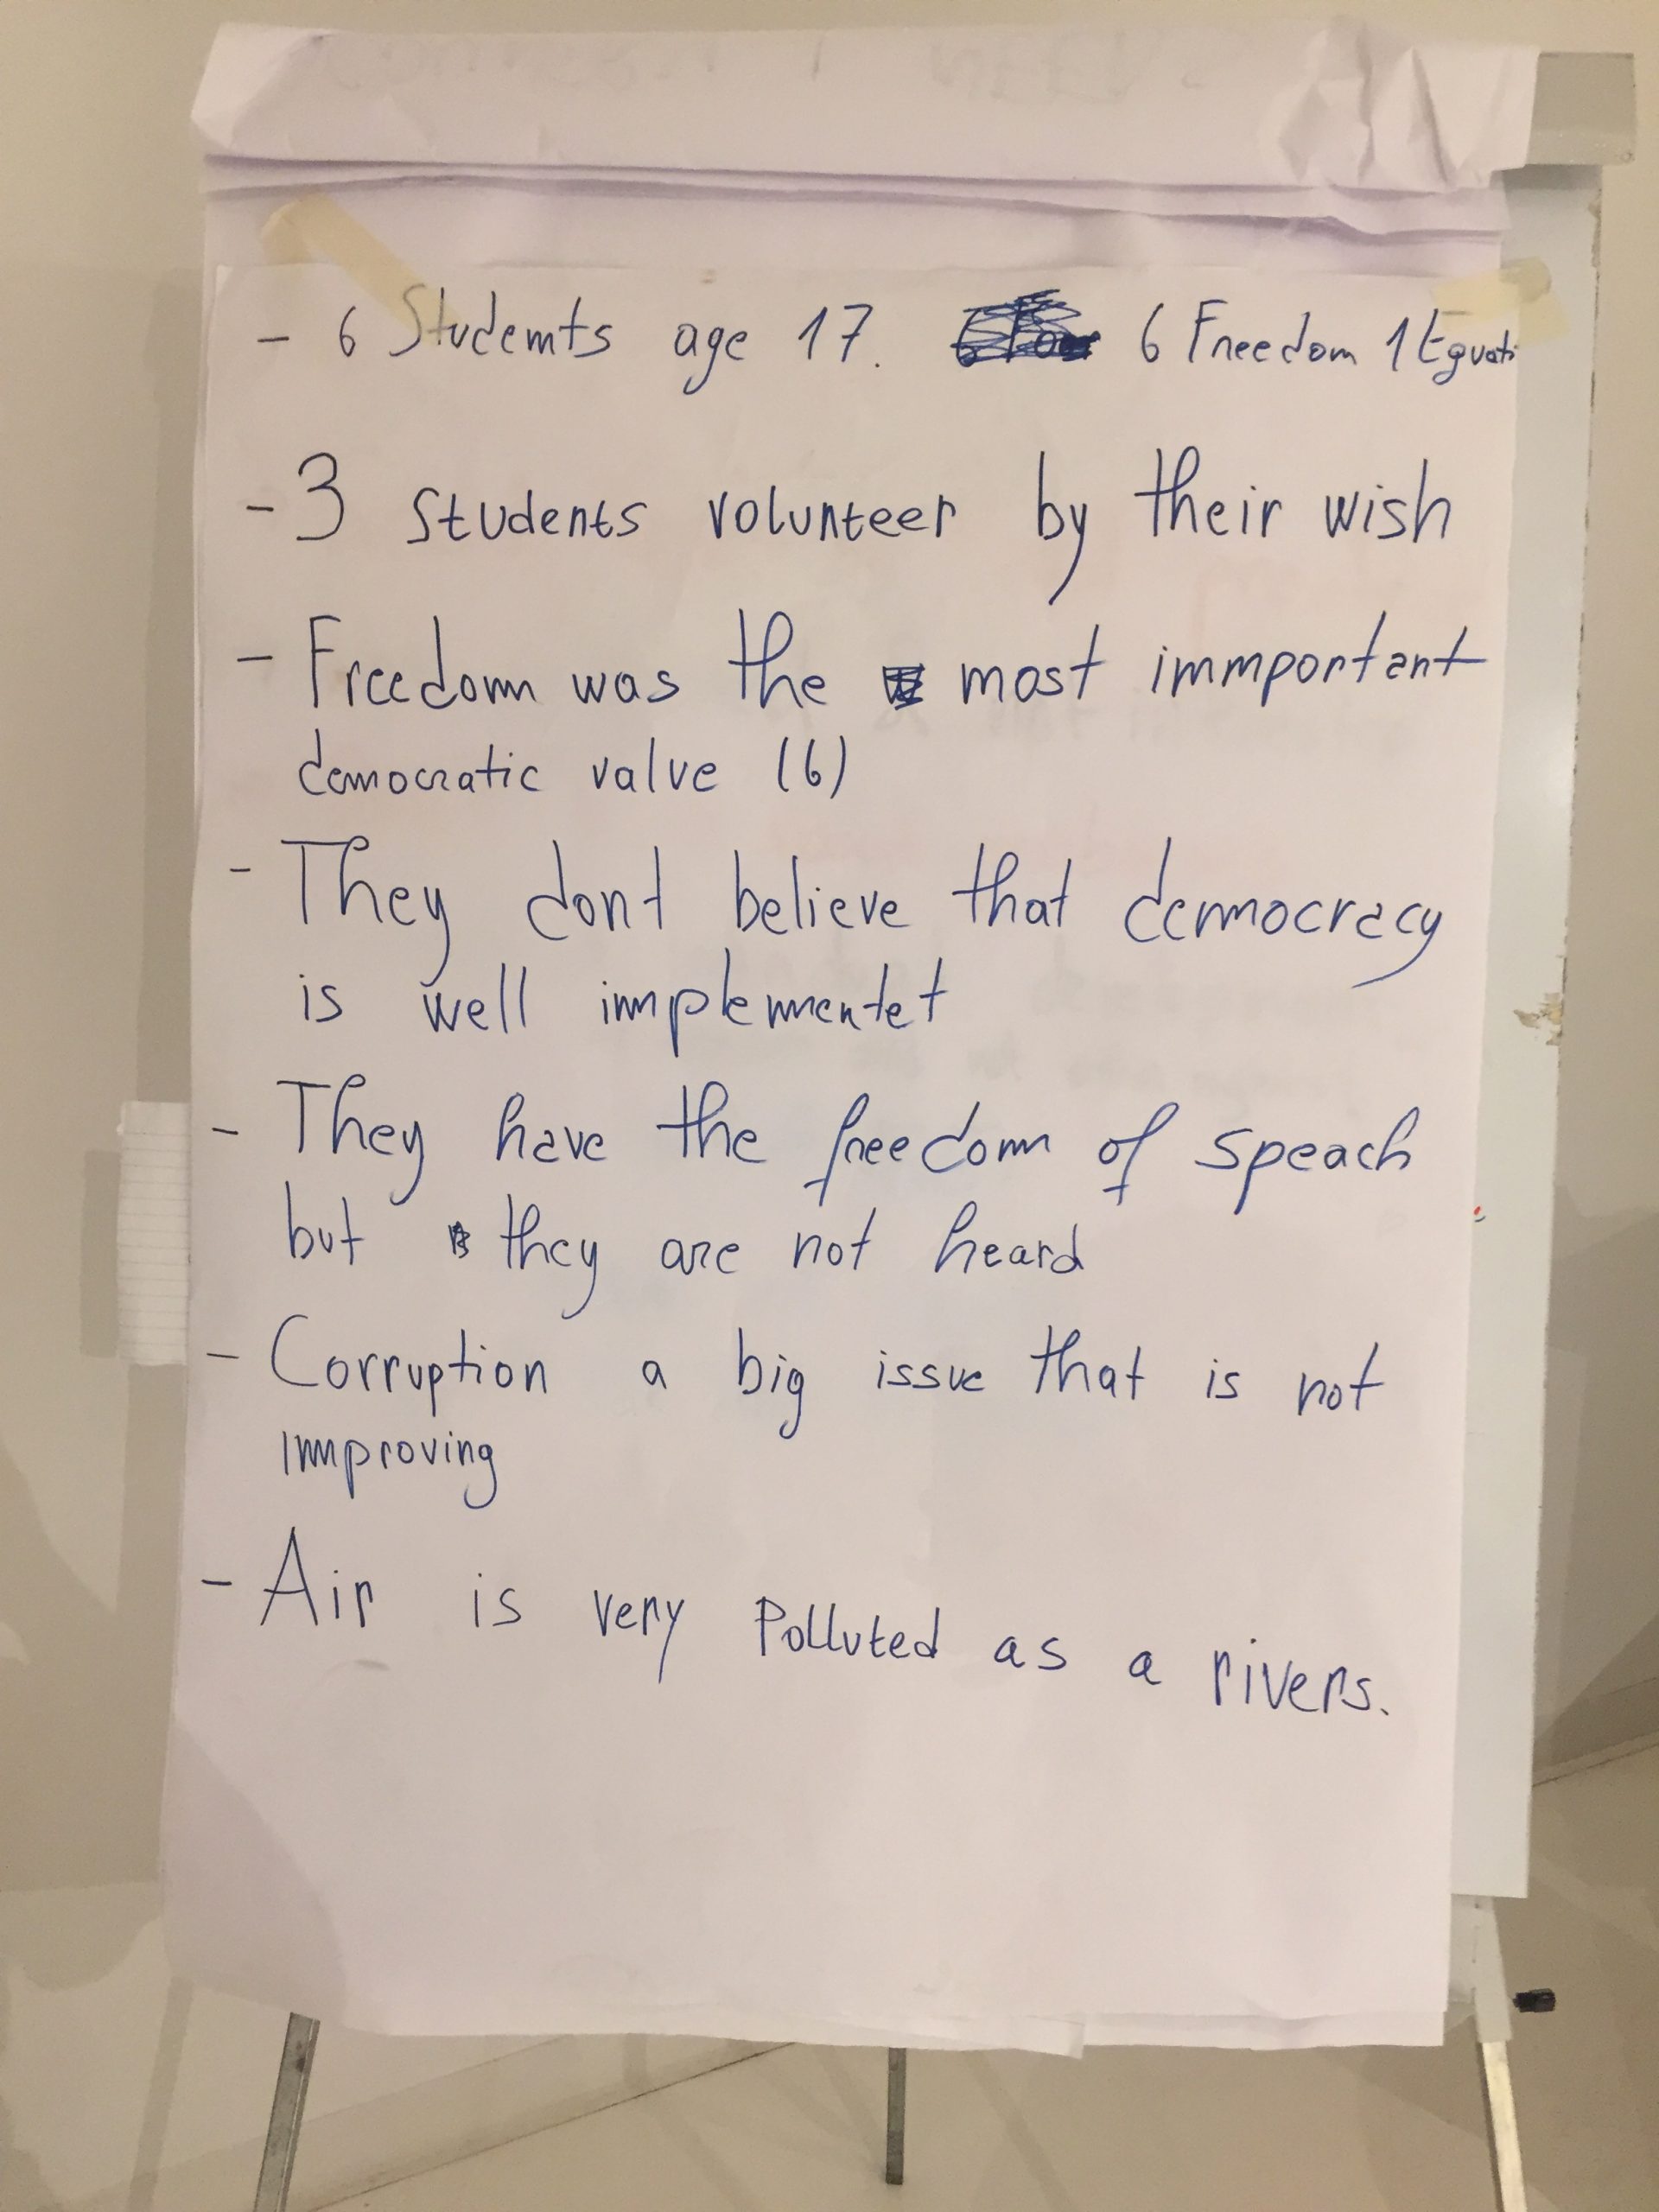 - 6 Students age 17. 6 Freedom 1
- 3 students volunteer by their wish
- Freedom was the most immportant
democratic value (6)
- They dont believe that democracy
is well implementet
- They have the freedom of speach
but they are not heard
- Corruption a big issue that is not
improving
- Air is very Polluted as a rivers.